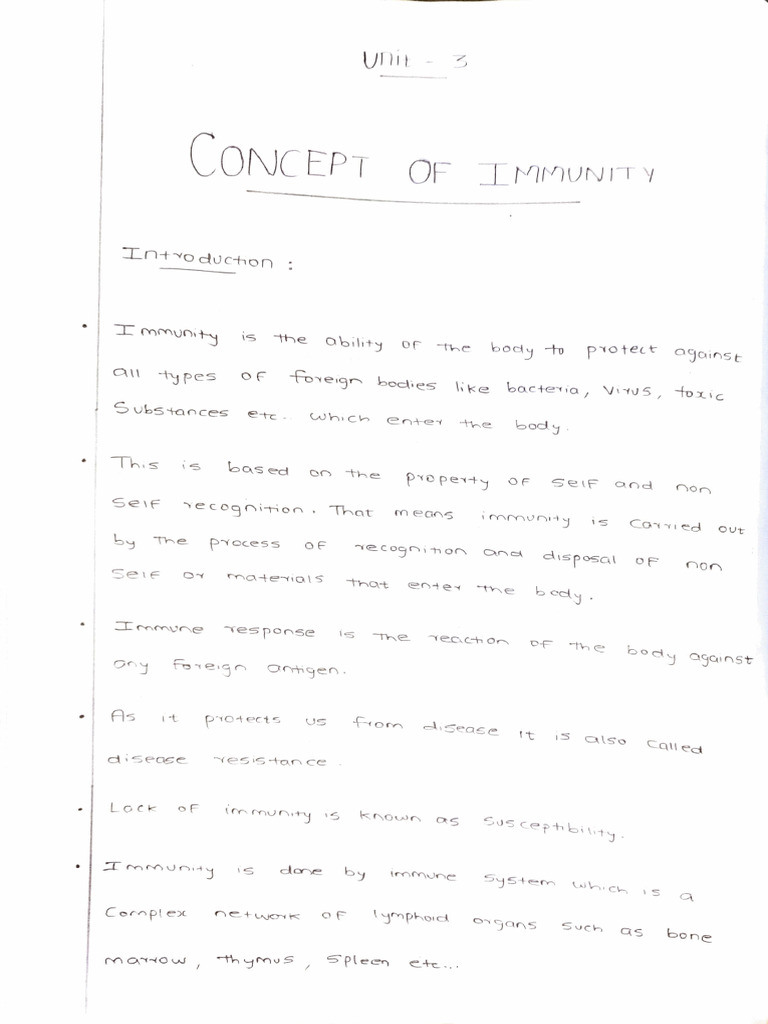 Unit - 3
CONCEPT OF IMMUNITY
Introduction :
• Immunity is the ability of the body to protect against
all types of foreign bodies like bacteria, virus, toxic
Substances etc.. which enter the body.
• This is based on the property of self and non
self recognition. That means immunity is carried out
by the process of recognition and disposal of non
self or materials that enter the body.
• Immune response is the reaction of the body against
any foreign antigen.
• As it protects us from disease it is also called
disease resistance.
• Lack of immunity is known as susceptibility.
• Immunity is done by immune system which is a
Complex network of lymphoid organs such as bone
marrow, thymus, spleen etc...